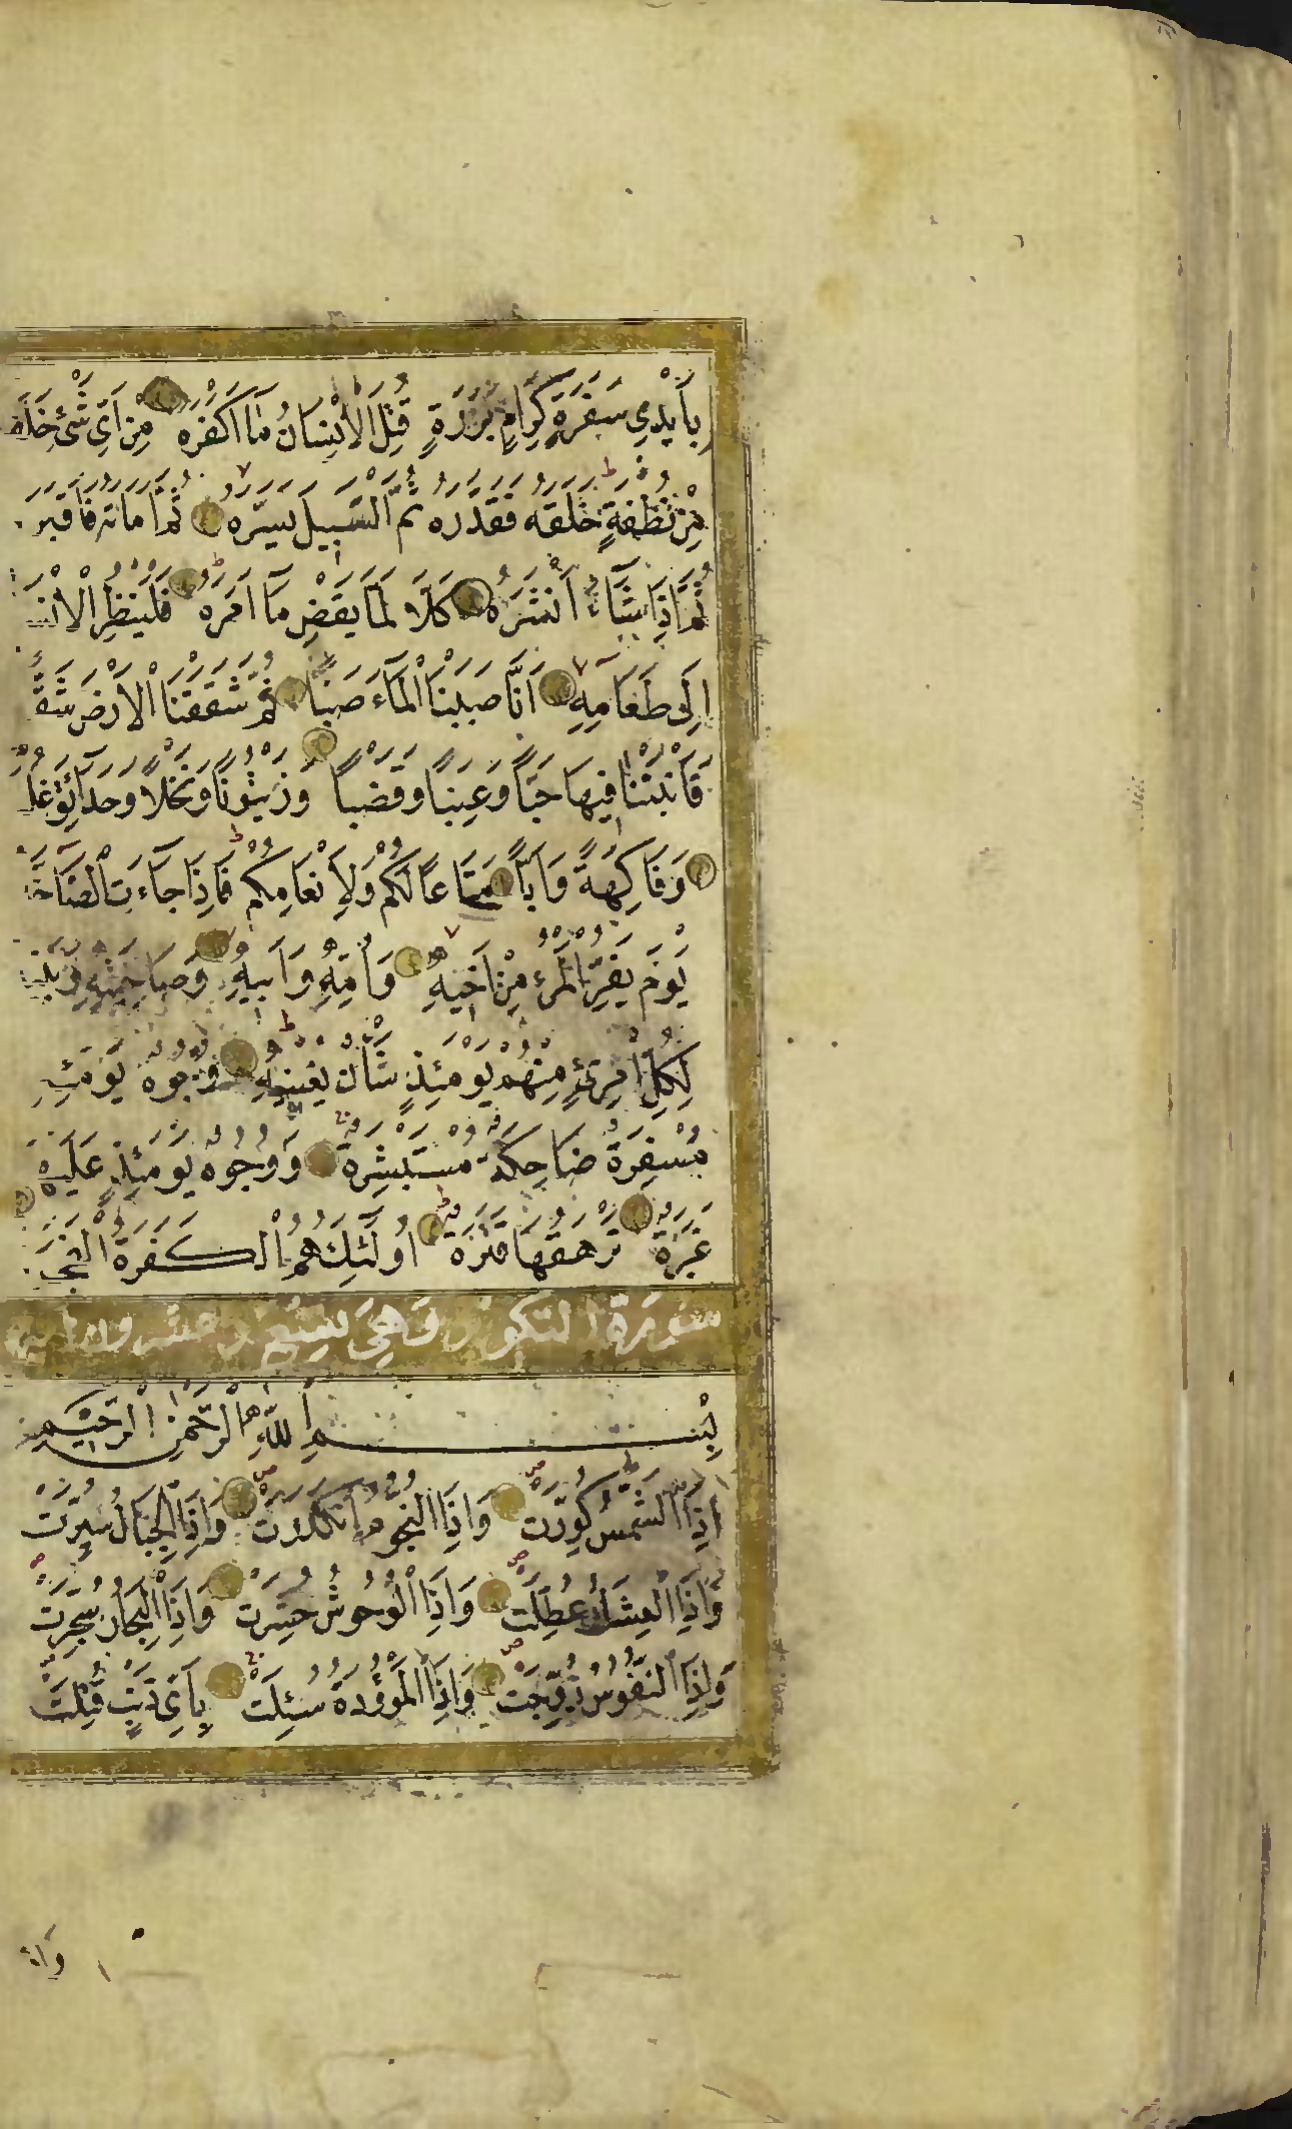 بِاَيْدِي سَفَرَةٍ كِرَامٍ بَرَرَةٍ قُتِلَ الْاِنْسَانُ مَا اَكْفَرَهُ مِنْ اَيِّ شَيْءٍ خَلَقَهُ
مِنْ نُطْفَةٍ خَلَقَهُ فَقَدَّرَهُ ثُمَّ السَّبِيلَ يَسَّرَهُ ثُمَّ اَمَاتَهُ فَاَقْبَرَهُ
ثُمَّ اِذَا شَاءَ اَنْشَرَهُ كَلَّا لَمَّا يَقْضِ مَا اَمَرَهُ فَلْيَنْظُرِ الْاِنْسَ
اِلَى طَعَامِهِ اَنَّا صَبَبْنَا الْمَاءَ صَبًّا ثُمَّ شَقَقْنَا الْاَرْضَ شَقًّا
فَاَنْبَتْنَا فِيهَا حَبًّا وَعِنَبًا وَقَضْبًا وَزَيْتُونًا وَنَخْلًا وَحَدَائِقَ غُلْبًا
وَفَاكِهَةً وَاَبًّا مَتَاعًا لَكُمْ وَلِاَنْعَامِكُمْ فَاِذَا جَاءَتِ الصَّاخَّةُ
يَوْمَ يَفِرُّ الْمَرْءُ مِنْ اَخِيهِ وَاُمِّهِ وَاَبِيهِ وَصَاحِبَتِهِ وَبَنِيهِ
لِكُلِّ امْرِئٍ مِنْهُمْ يَوْمَئِذٍ شَأْنٌ يُغْنِيهِ وُجُوهٌ يَوْمَئِذٍ
مُسْفِرَةٌ ضَاحِكَةٌ مُسْتَبْشِرَةٌ وَوُجُوهٌ يَوْمَئِذٍ عَلَيْهَا
غَبَرَةٌ تَرْهَقُهَا قَتَرَةٌ اُولَئِكَ هُمُ الْكَفَرَةُ الْفَجَرَةُ
سُورَةُ التَّكْوِيرِ وَهِيَ تِسْعٌ وَعِشْرُونَ اٰيَة
بِسْمِ اللّٰهِ الرَّحْمٰنِ الرَّحِيمِ
اِذَا الشَّمْسُ كُوِّرَتْ وَاِذَا النُّجُومُ انْكَدَرَتْ وَاِذَا الْجِبَالُ سُيِّرَتْ
وَاِذَا الْعِشَارُ عُطِّلَتْ وَاِذَا الْوُحُوشُ حُشِرَتْ وَاِذَا الْبِحَارُ سُجِّرَتْ
وَاِذَا النُّفُوسُ زُوِّجَتْ وَاِذَا الْمَوْؤُدَةُ سُئِلَتْ بِاَيِّ ذَنْبٍ قُتِلَتْ